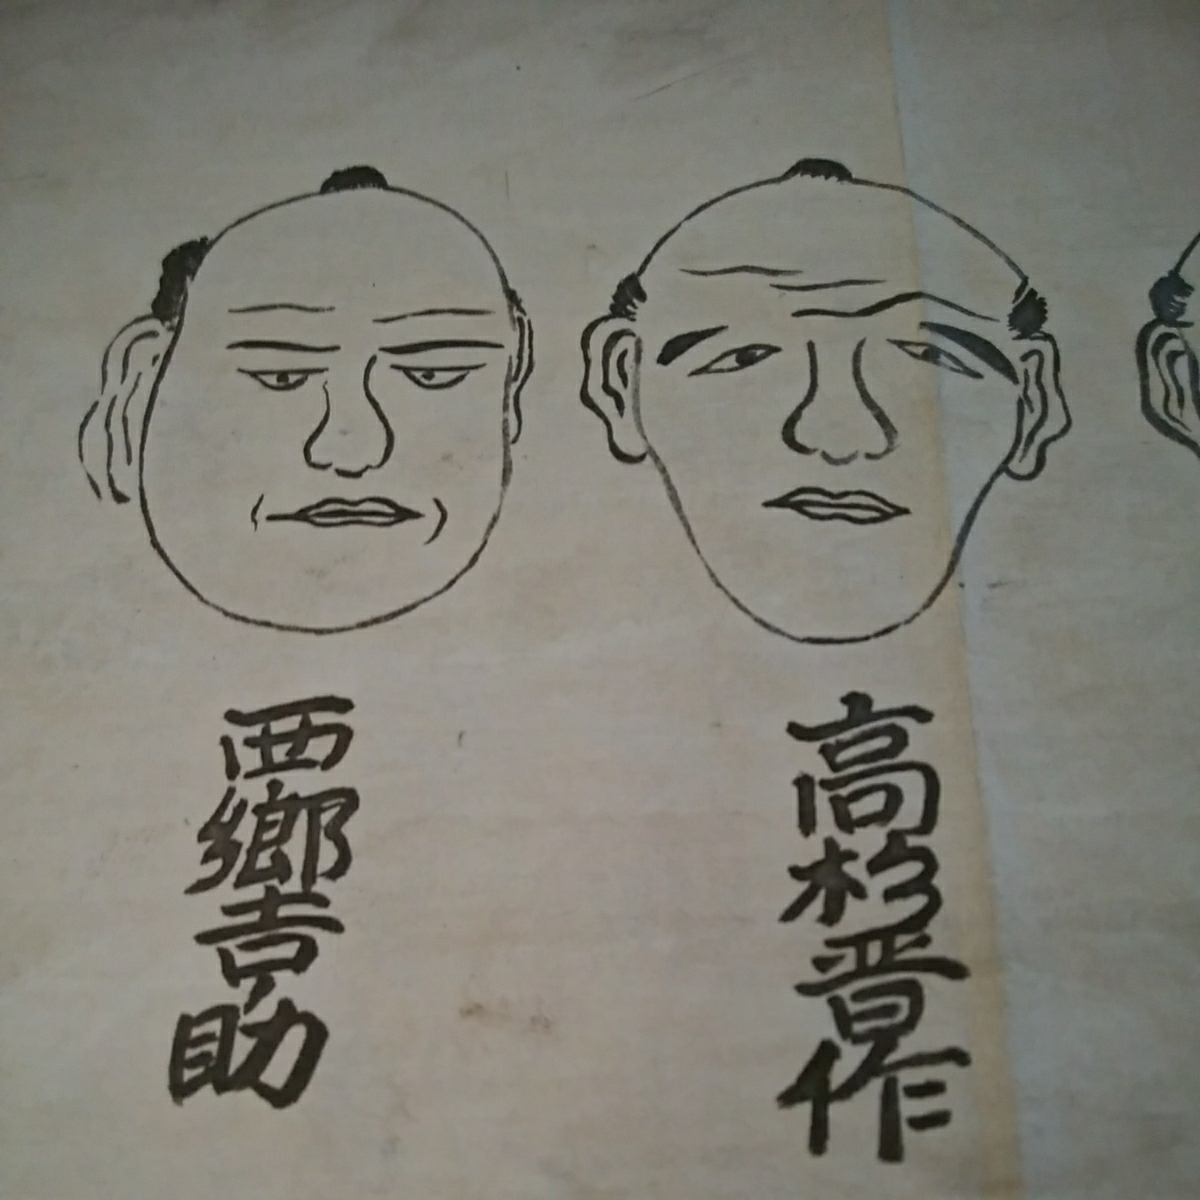 高杉晋作
西郷吉之助